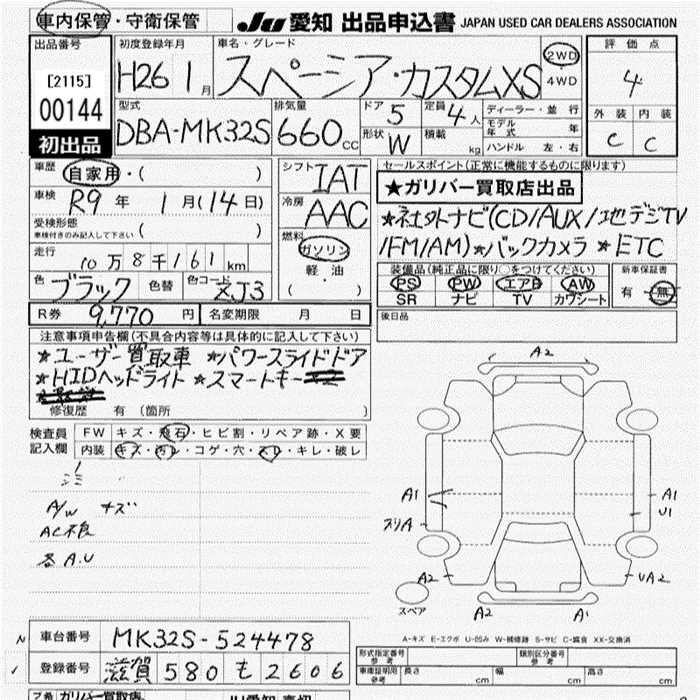 車内保管・守衛保管
JU 愛知 出品申込書 JAPAN USED CAR DEALERS ASSOCIATION
出品番号 初度登録年月 車名・グレード 評価点
[2115] H26 1月 スペーシア・カスタムXS 2WD 4WD 4
00144 型式 排気量 ドア 定員 ディーラー・並行 外装 内装
DBA-MK32S 660cc 5 4人 モデル年式 年 C C
初出品 形状 W 積載 kg ハンドル 左・右
車歴 自家用・( ) シフト IAT セールスポイント(正常に機能するものに限ります)
★ガリバー買取店出品
車検 R9年 1月(14日) 冷房 AAC ★社外ナビ(CD/AUX/地デジTV
受検形態 ( )
車検付きのみ記入して下さい 燃料 /FM/AM)★バックカメラ ★ETC
走行 10万8千161km ガソリン 装備品(純正品に限り○をつけてください) 新車保証書
軽油 PS PW エアB AW 有・無
色 ブラック 色替 色コード ZJ3 ( ・ ) SR ナビ TV カワシート
R券 9,770円 名変期限 月 日 後日品
注意事項申告欄(不具合内容等は具体的に記入して下さい)
★ユーザー買取車 ★パワースライドドア
★HIDヘッドライト ★スマートキー
修復歴 有 (箇所 )
検査員 FW キズ・飛石・ヒビ割・リペア跡・X要
記入欄 内装 キズ・汚レ・コゲ・穴・スレ・キレ・破レ
A/W キズ
AC不良
各A.U
A2
A1 A1
U1
スリA
A2 UA2
スペア A2 A1
A-キズ E-エクボ U-凹み W-補修跡 S-サビ C-腐食 XX-交換済
車台番号 MK32S-524478 型式指定番号 参考 類別区分番号 参考
登録番号 滋賀 580 も 2606 車庫証明用 参考 長さ cm 幅 cm 高さ cm
ガリバー買取店